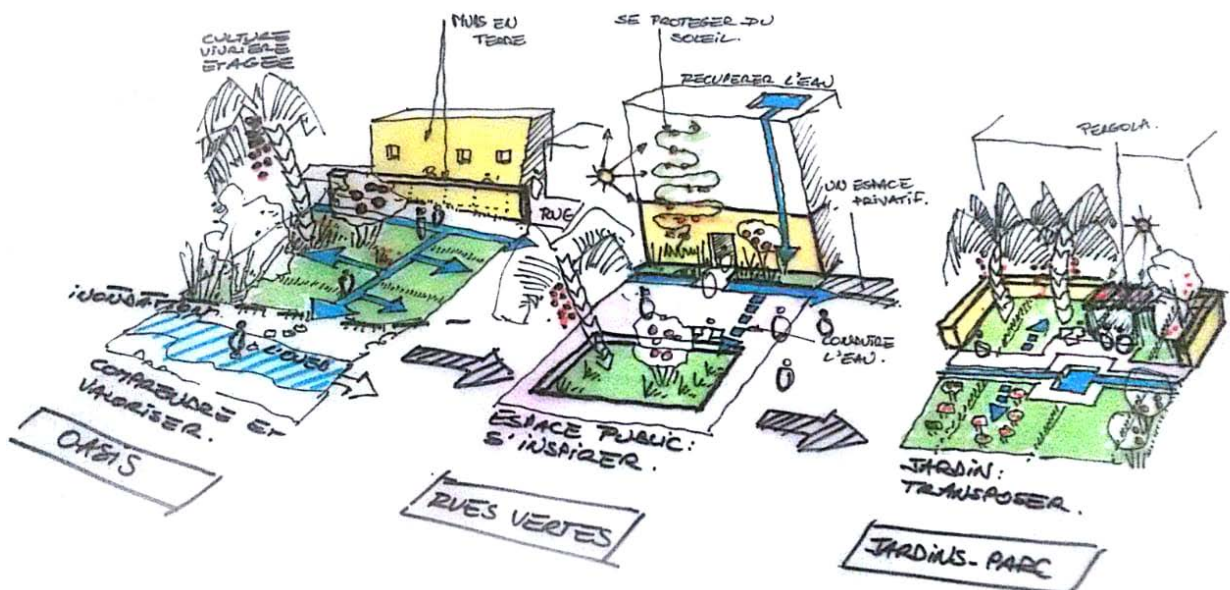 CULTURE
VIVRIÈRE
ETAGEE
MURS EN
TERRE
SE PROTEGER DU
SOLEIL.
RECUPERER L'EAU
PERGOLA.
UN ESPACE
PRIVATIF.
RUE
INONDATION
OUED
CONDUIRE
L'EAU.
COMPRENDRE ET
VALORISER.
ESPACE PUBLIC:
S'INSPIRER.
JARDIN:
TRANSPOSER.
OASIS
RUES VERTES
JARDINS-PARC